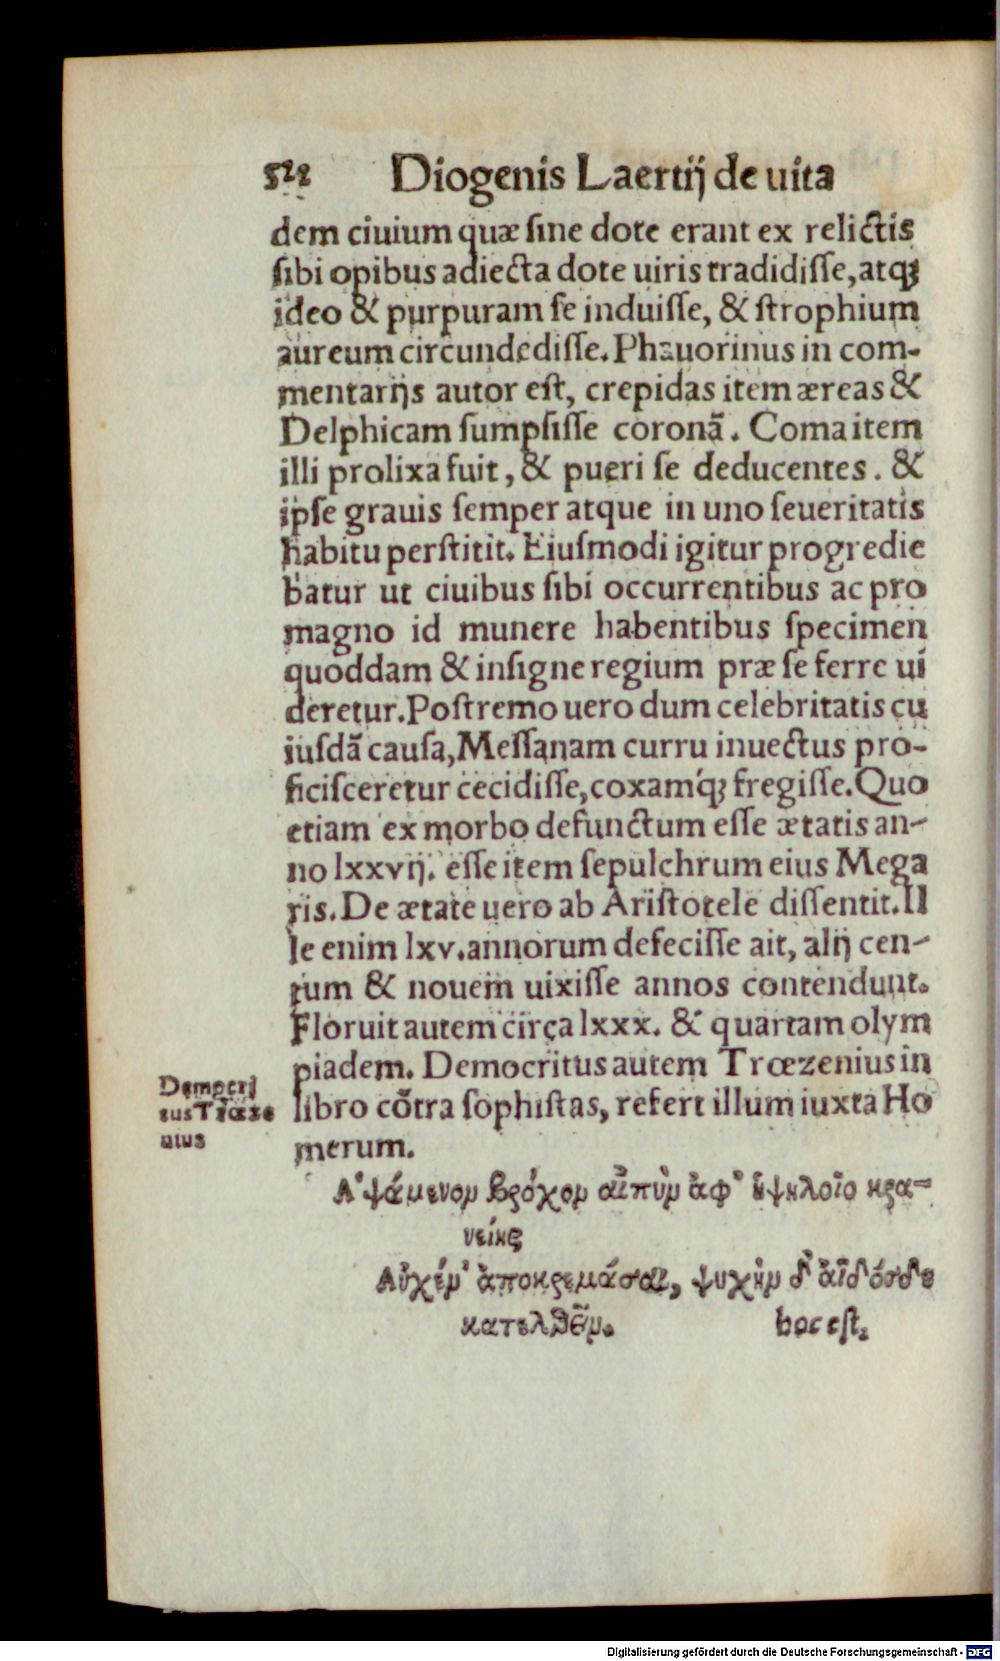 522 Diogenis Laertij de uita
dem ciuium quæ ſine dote erant ex relictis
ſibi opibus adiecta dote uiris tradidiſſe, atqꝫ
ideo & purpuram ſe induiſſe, & ſtrophium
aureum circundediſſe. Phauorinus in com-
mentarijs autor eſt, crepidas item æreas &
Delphicam ſumpſiſſe coronã. Coma item
illi prolixa fuit, & pueri ſe deducentes. &
ipſe grauis ſemper atque in uno ſeueritatis
habitu perſtitit. Eiuſmodi igitur progredie
batur ut ciuibus ſibi occurrentibus ac pro
magno id munere habentibus ſpecimen
quoddam & inſigne regium præ ſe ferre ui
deretur. Poſtremo uero dum celebritatis cu
iuſdã cauſa, Meſſanam curru inuectus pro-
ficiſceretur cecidiſſe, coxamq́ꝫ fregiſſe. Quo
etiam ex morbo defunctum eſſe ætatis an-
no lxxvij. eſſe item ſepulchrum eius Mega
ris. De ætate uero ab Ariſtotele diſſentit. Il
le enim lxv. annorum defeciſſe ait, alij cen-
tum & nouem uixiſſe annos contendunt.
Floruit autem circa lxxx. & quartam olym
piadem. Democritus autem Trœzenius in
libro cõtra ſophiſtas, refert illum iuxta Ho
merum.
Democri
tus Trœze
nius
Ἁψάμενον βρόχον αἰπὺν ἀφ᾽ ὑψηλοῖο κρα-
νείης
Αὐχέν᾽ ἀποκρεμάσαι, ψυχὴν δ᾽ ἄϊδόσδε
κατελθεῖν. hoc eſt,
Digitalisierung gefördert durch die Deutsche Forschungsgemeinschaft - DFG